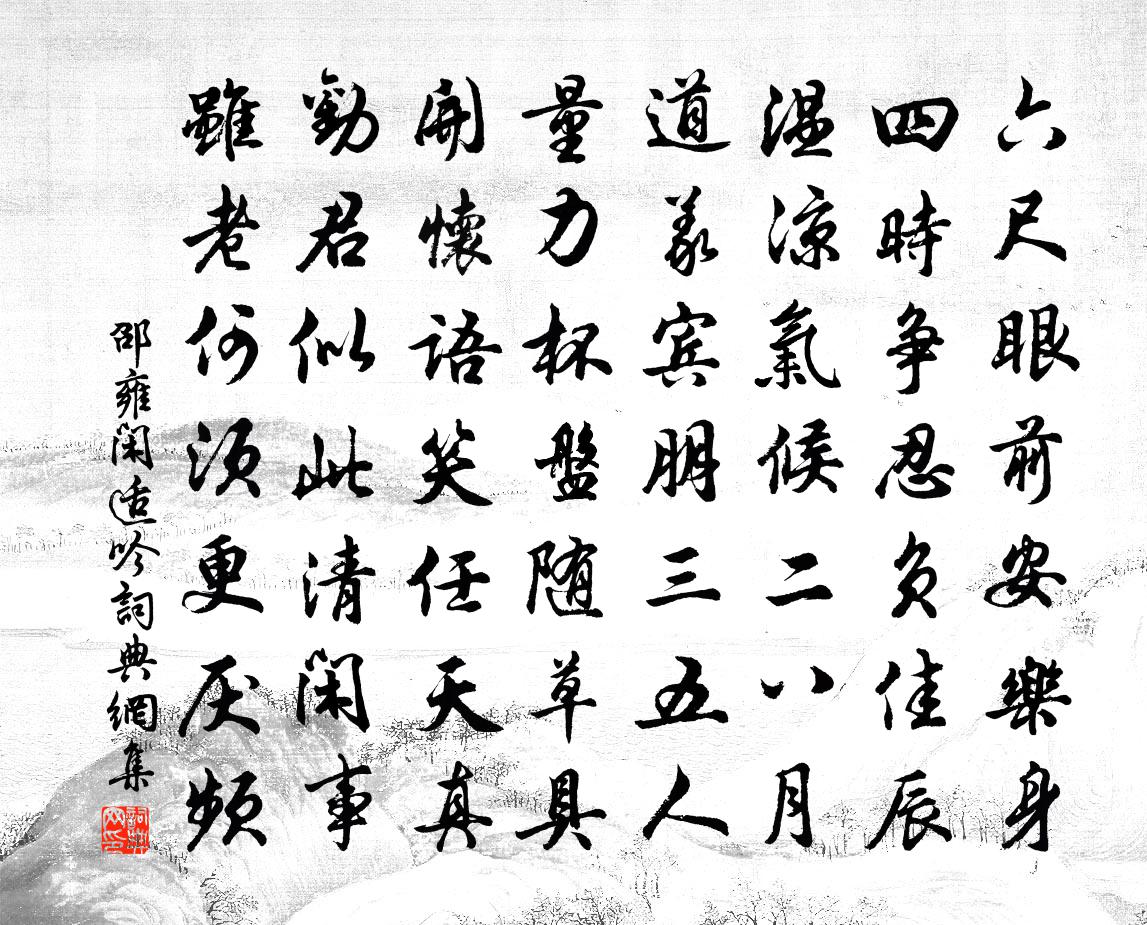 六尺眼前安樂身
四時爭忍負佳辰
溫涼氣候二八月
道義賓朋三五人
量力杯盤隨草具
開懷語笑任天真
勸君似此清閑事
雖老何須更厭頻
邵雍閑適吟詞典網集